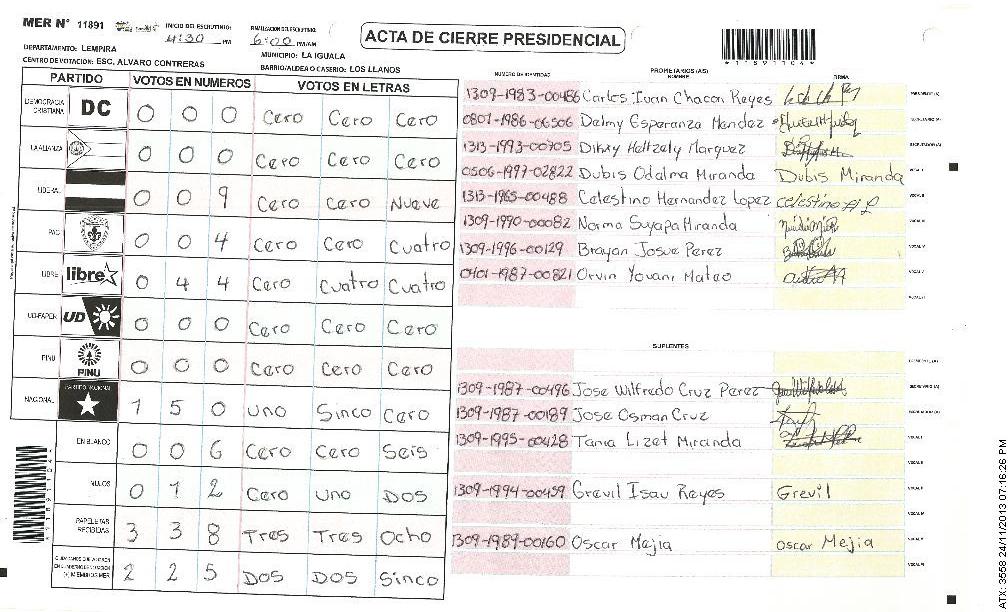 MER N° 11891
INICIO DEL ESCRUTINIO: 4:30 PM
FINALIZACION DEL ESCRUTINIO: 6:00 PM/AM
ACTA DE CIERRE PRESIDENCIAL
DEPARTAMENTO: LEMPIRA
MUNICIPIO: LA IGUALA
CENTRO DE VOTACION: ESC. ALVARO CONTRERAS
BARRIO/ALDEA O CASERIO: LOS LLANOS
PARTIDO VOTOS EN NUMEROS VOTOS EN LETRAS
DEMOCRACIA CRISTIANA DC 0 0 0 Cero Cero Cero
LA ALIANZA 0 0 0 Cero Cero Cero
LIBERAL 0 0 9 Cero Cero Nueve
PAC 0 0 4 Cero Cero Cuatro
LIBRE libre 0 4 4 Cero Cuatro Cuatro
UD-FAPER UD 0 0 0 Cero Cero Cero
PINU PINU 0 0 0 Cero Cero Cero
NACIONAL PARTIDO NACIONAL 1 5 0 Uno Sinco Cero
EN BLANCO 0 0 6 Cero Cero Seis
NULOS 0 1 2 Cero Uno Dos
PAPELETAS RECIBIDAS 3 3 8 Tres Tres Ocho
MIEMBROS MER 2 2 5 Dos Dos Sinco
NUMERO DE IDENTIDAD PROPIETARIOS (AS) NOMBRE FIRMA
1309-1983-00486 Carlos Ivan Chacon Reyes
0801-1986-06506 Delmy Esperanza Mendez
1313-1993-00705 Heltzely Marquez
0506-1997-02822 Dubis Odalma Miranda Dubis Miranda
1313-1965-00488 Celestino Hernandez Lopez celestino H L
1309-1990-00082 Norma Suyapa Miranda
1309-1996-00129 Brayan Josue Perez
0401-1987-00821 Orvin Yovani Mateo
SUPLENTES
1309-1987-00496 Jose Wilfredo Cruz Perez
1309-1987-00189 Jose Osman Cruz
1309-1995-00428 Tania Lizet Miranda
1309-1994-00459 Grevil Isau Reyes Grevil
1309-1989-00160 Oscar Mejia oscar Mejia
ATX: 3558 24/11/2013 07:16:26 PM